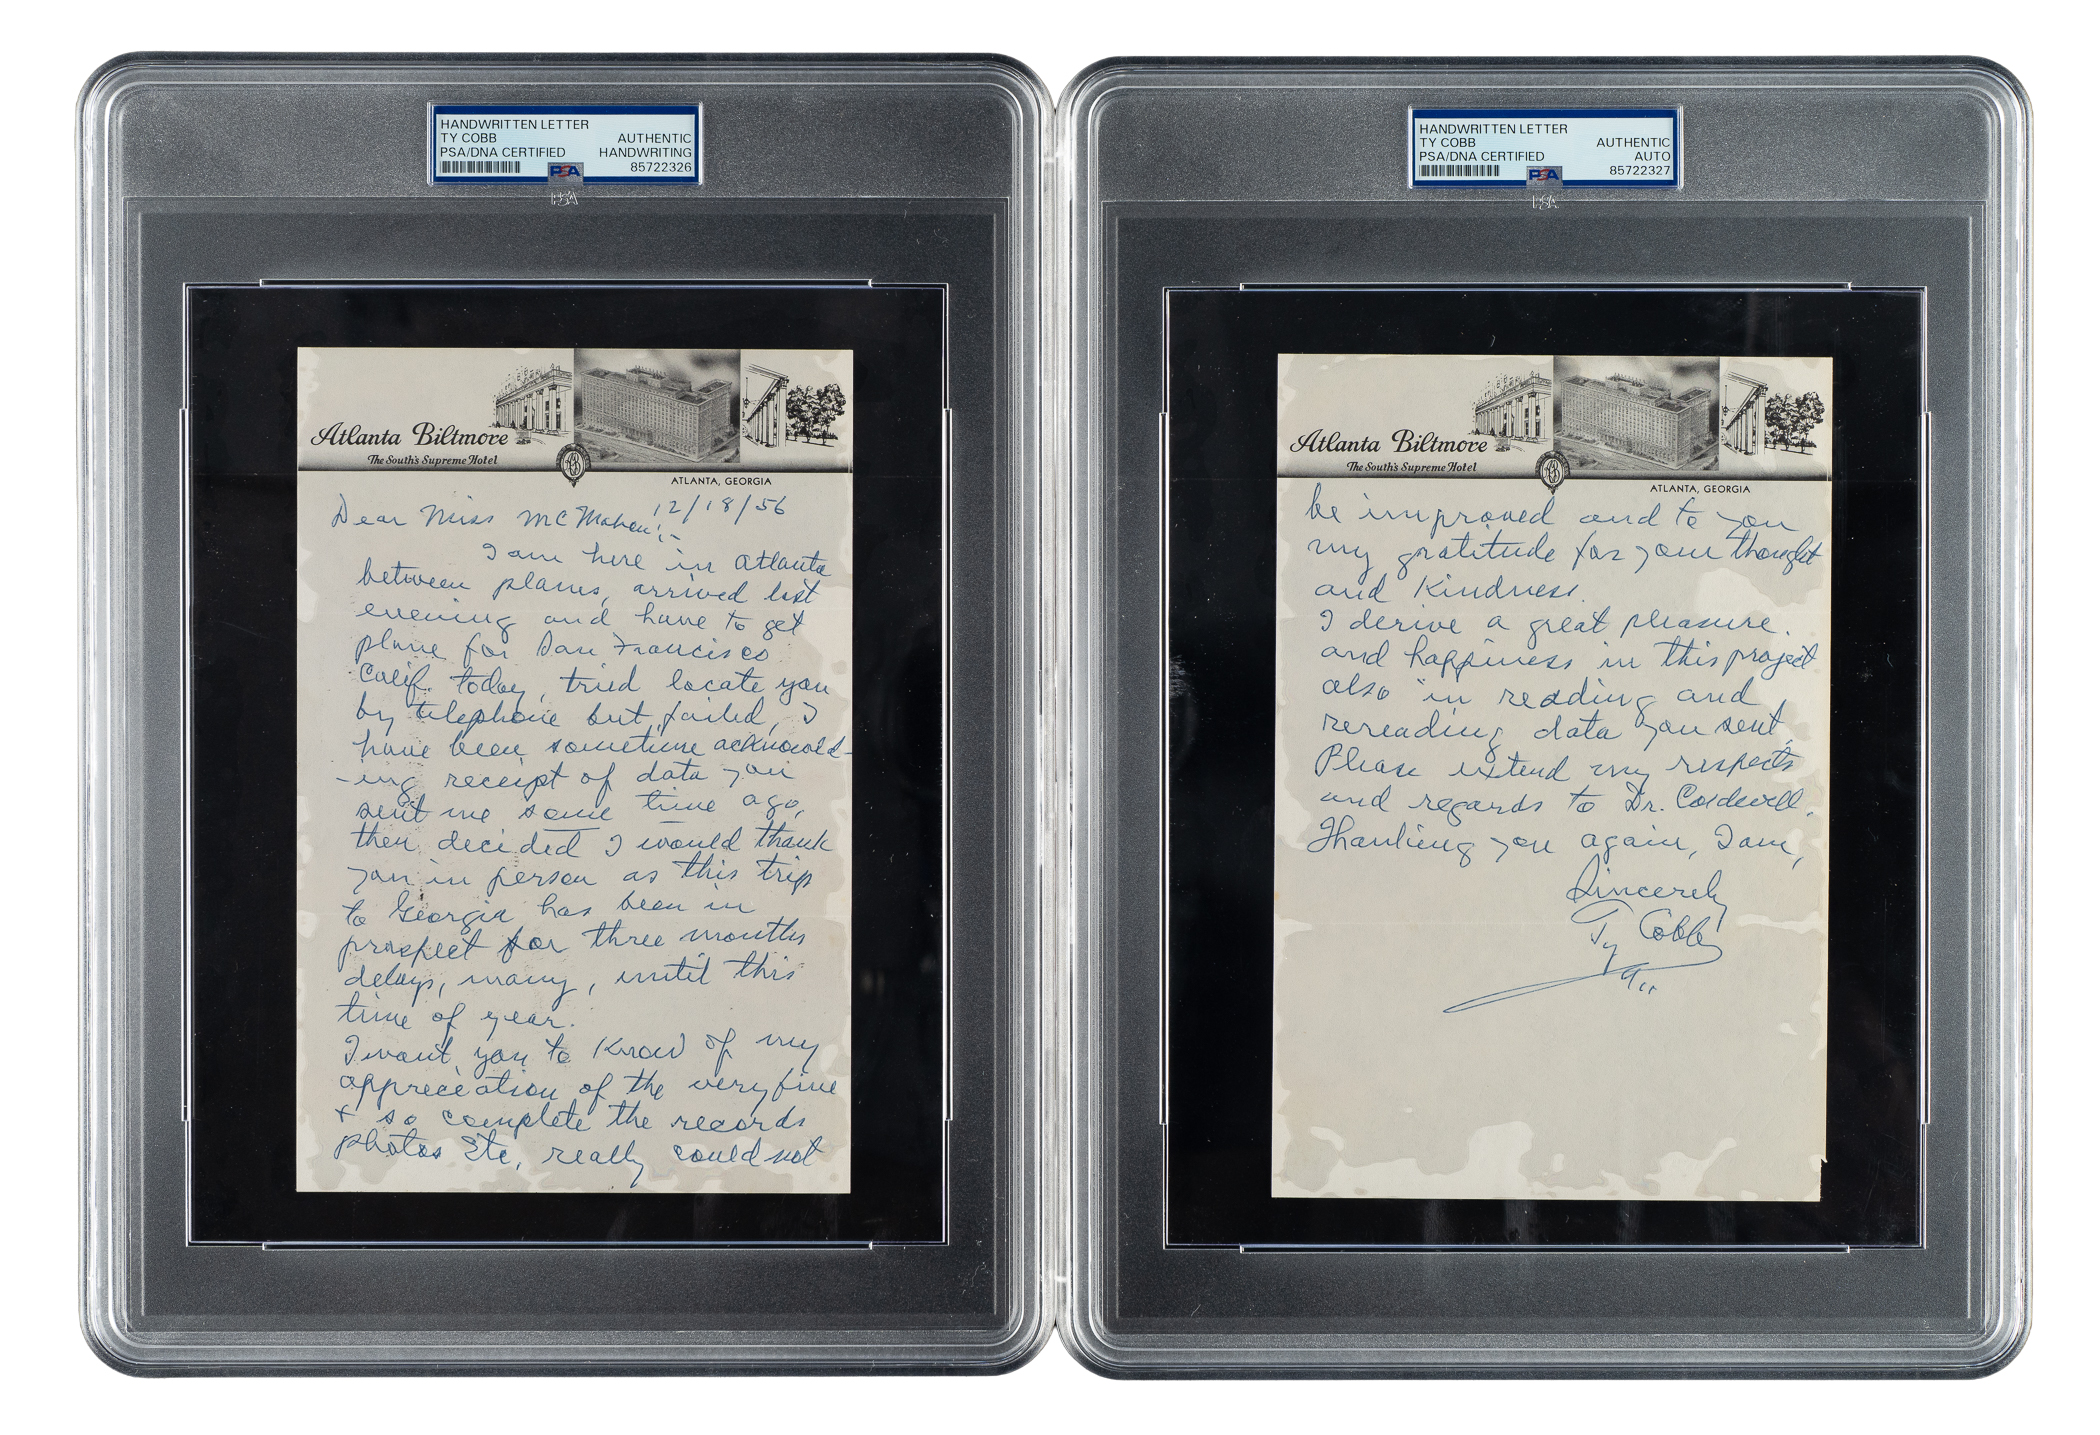 HANDWRITTEN LETTER
TY COBB AUTHENTIC
PSA/DNA CERTIFIED HANDWRITING
PSA 85722326
PSA
Atlanta Biltmore
The South's Supreme Hotel
ATLANTA, GEORGIA
12/18/56
Dear Miss McMahan:-
I am here in Atlanta
between planes, arrived last
evening and have to get
plane for San Francisco
Calif. today, tried locate you
by telephone but failed, I
have been sometime acknowled-
-ing receipt of data you
sent me some time ago,
then decided I would thank
you in person as this trip
to Georgia has been in
prospect for three months
delays, many, until this
time of year.
I want you to know of my
appreciation of the very fine
+ so complete the records
photos Etc, really could not
HANDWRITTEN LETTER
TY COBB AUTHENTIC
PSA/DNA CERTIFIED AUTO
PSA 85722327
PSA
Atlanta Biltmore
The South's Supreme Hotel
ATLANTA, GEORGIA
be improved and to you
my gratitude for your thought
and kindness.
I derive a great pleasure.
and happiness in this project
also in reading and
rereading data you sent
Please extend my respects
and regards to Dr.
Thanking you again, I am,
Sincerely
Ty Cobb